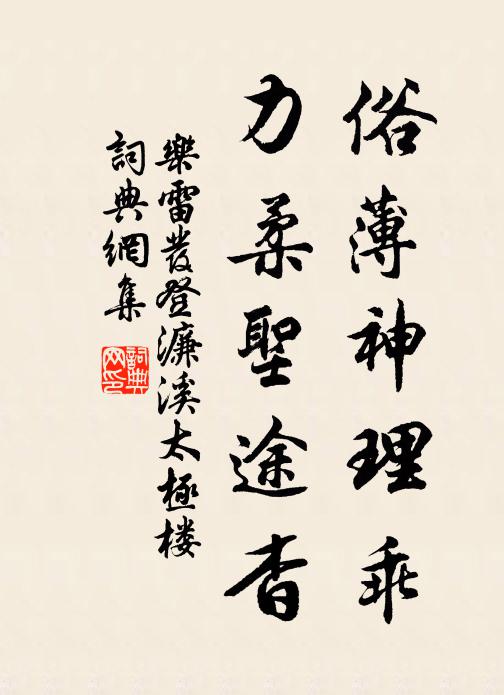 俗薄神理乖
力柔聖途杳
樂雷發登濂溪太極楼
詞典網集
詞典网印